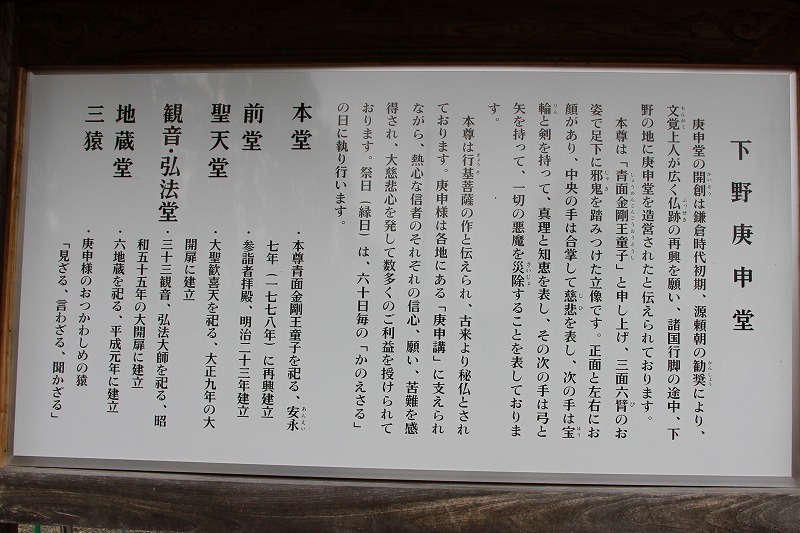 下野庚申堂
庚申堂の開創は鎌倉時代初期、源頼朝の勧奨により、
文覚上人が広く仏跡の再興を願い、諸国行脚の途中、下
野の地に庚申堂を造営されたと伝えられております。
本尊は「青面金剛王童子」と申し上げ、三面六臂のお
姿で足下に邪鬼を踏みつけた立像です。正面と左右にお
顔があり、中央の手は合掌して慈悲を表し、次の手は宝
輪と剣を持って、真理と知恵を表し、その次の手は弓と
矢を持って、一切の悪魔を災除することを表しておりま
す。
本尊は行基菩薩の作と伝えられ、古来より秘仏とされ
ております。庚申様は各地にある「庚申講」に支えられ
ながら、熱心な信者のそれぞれの信心、願い、苦難を感
得され、大慈悲心を発して数多くのご利益を授けられて
おります。祭日（縁日）は、六十日毎の「かのえさる」
の日に執り行います。
本堂
・本尊青面金剛王童子を祀る、安永
七年（一七七八年）に再興建立
前堂
・参詣者拝殿、明治二十三年建立
聖天堂
・大聖歓喜天を祀る、大正九年の大
開扉に建立
観音・弘法堂
・三十三観音、弘法大師を祀る、昭
和五十五年の大開扉に建立
地蔵堂
・六地蔵を祀る、平成元年に建立
三猿
・庚申様のおつかわしめの猿
「見ざる、言わざる、聞かざる」